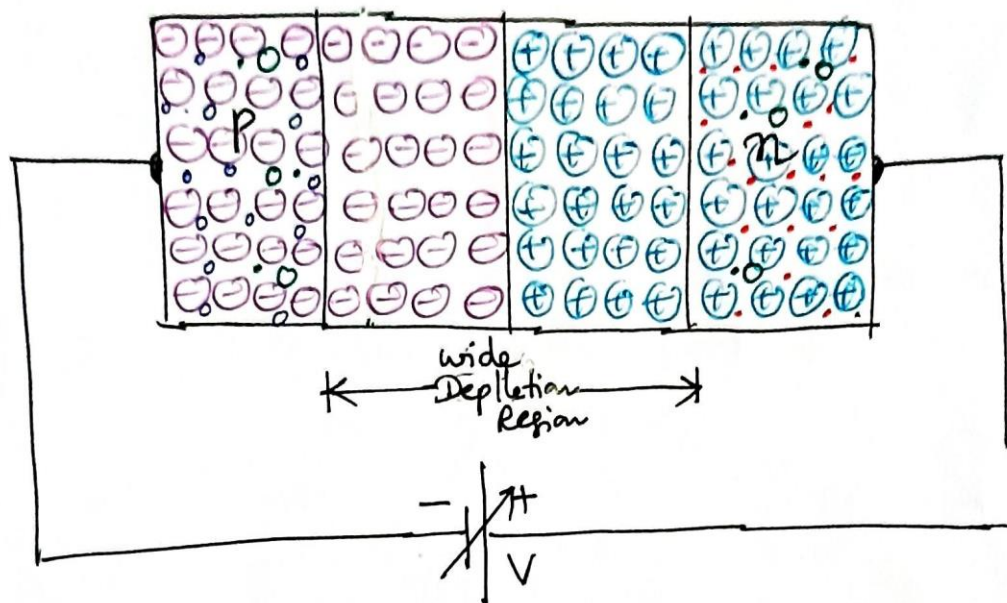 P
n
wide
Deplletion
Region
- +
V